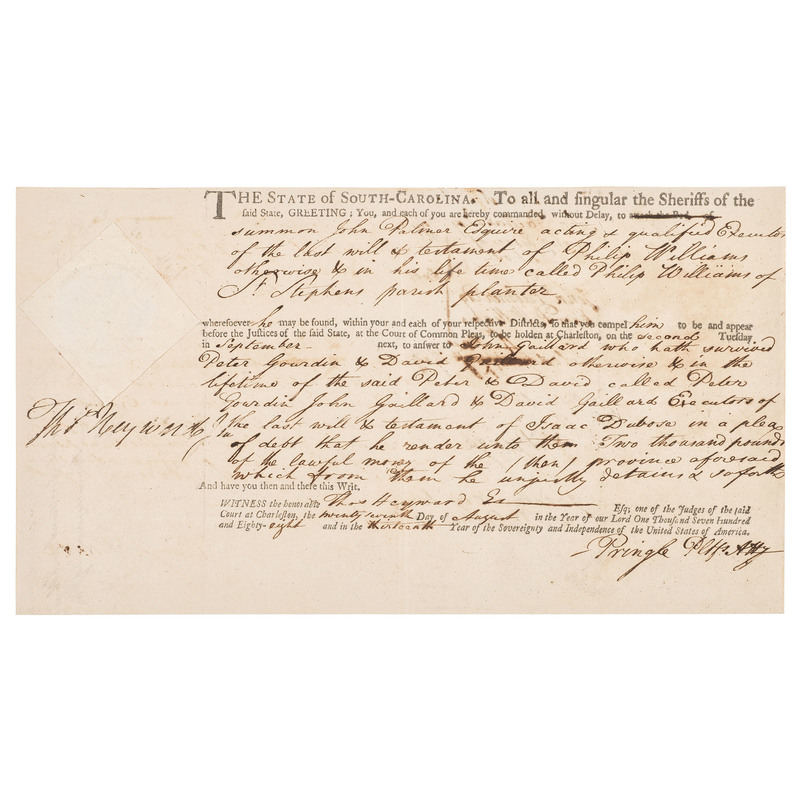 THE STATE of SOUTH-CAROLINA. To all and singular the Sheriffs of the
said State, GREETING; You, and each of you are hereby commanded, without Delay, to
summon John Palmer Esquire acting & qualified Executor
of the last will & testament of Philip Williams
otherwise & in his life time called Philip Williams of
St. Stephens parish planter
wheresoever he may be found, within your and each of your respective Districts, so that you compel him to be and appear
before the Justices of the said State, at the Court of Common Pleas, to be holden at Charleston, on the second Tuesday
in September next, to answer to John Gaillard who hath survived
Peter Gourdin & David Gaillard otherwise & in the
lifetime of the said Peter & David called Peter
Gourdin John Gaillard & David Gaillard Executors of
the last will & testament of Isaac Dubose in a plea
of debt that he render unto them Two thousand pounds
of the lawful money of the (then) province aforesaid
which from them he unjustly detains & so forth
And have you then and there this Writ.
Thos Heyward Jr
WITNESS the honorable Thos Heyward Esq; one of the Judges of the said
Court at Charleston, the twenty seventh Day of August in the Year of our Lord One Thousand Seven Hundred
and Eighty-eight and in the thirteenth Year of the Sovereignty and Independence of the United States of America.
Pringle Plffs Atty